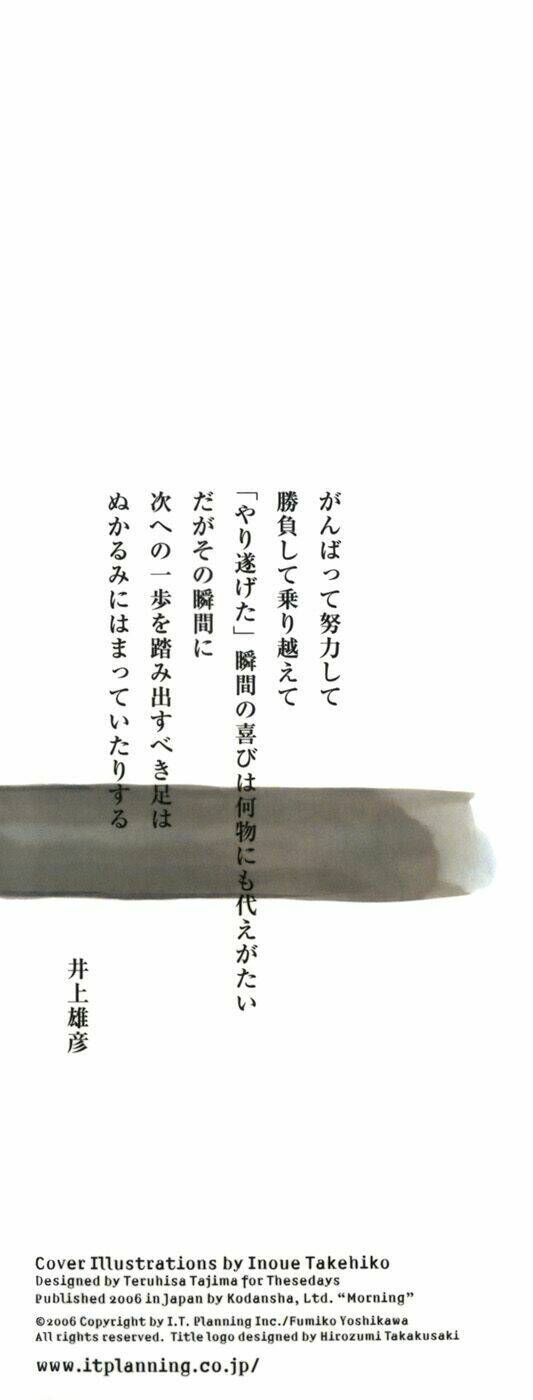 がんばって努力して
勝負して乗り越えて
「やり遂げた」瞬間の喜びは何物にも代えがたい
だがその瞬間に
次への一歩を踏み出すべき足は
ぬかるみにはまっていたりする
井上雄彦
Cover Illustrations by Inoue Takehiko
Designed by Teruhisa Tajima for Thesedays
Published 2006 in Japan by Kodansha, Ltd. “Morning”
©2006 Copyright by I.T. Planning Inc./Fumiko Yoshikawa
All rights reserved. Title logo designed by Hirozumi Takakusaki
www.itplanning.co.jp/